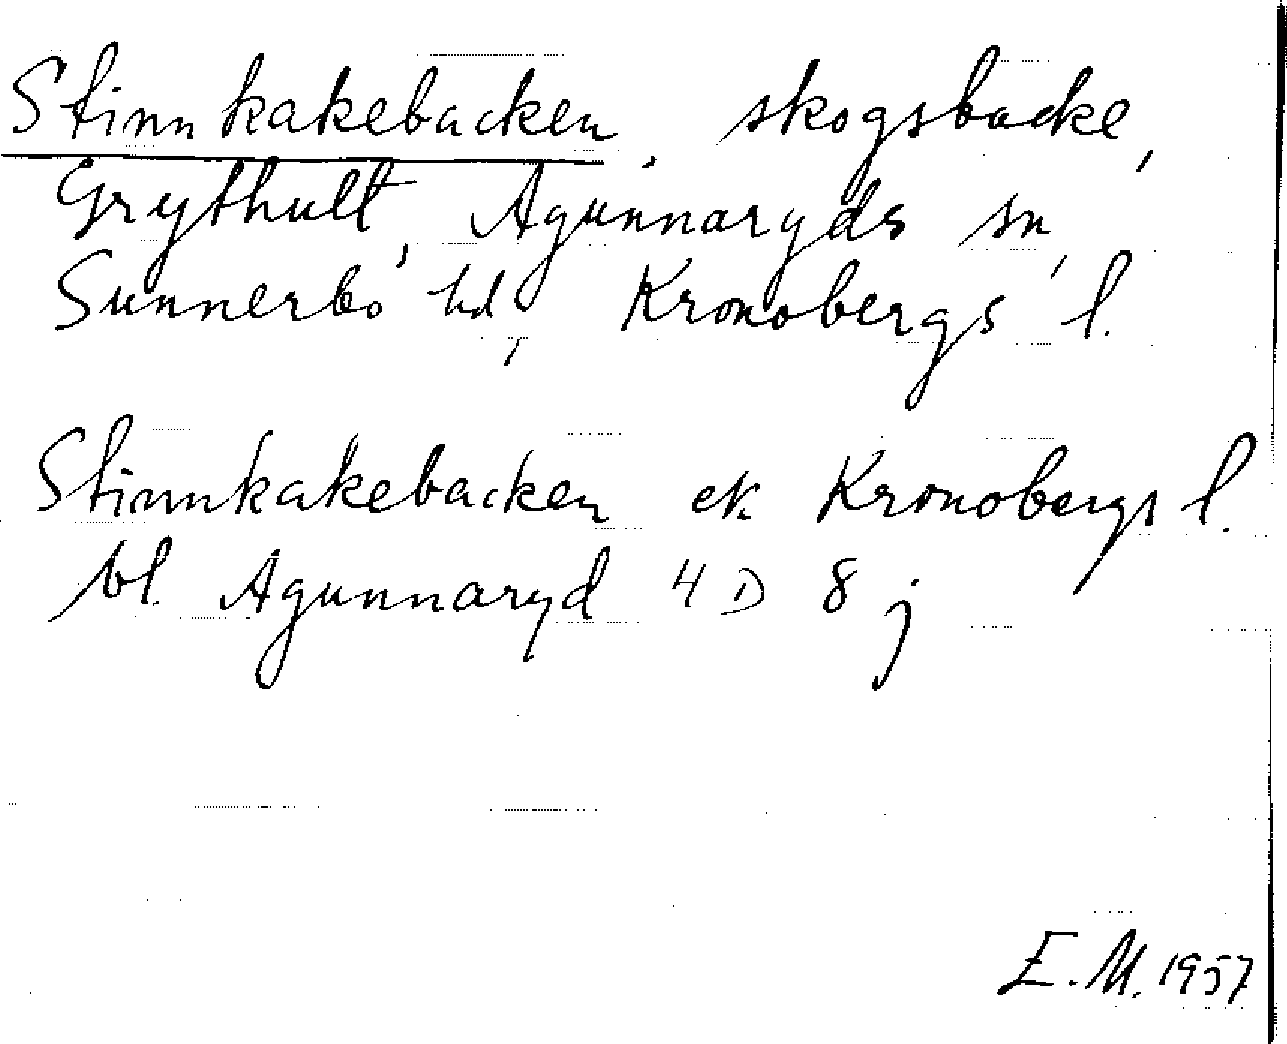 Stinnkakebacken. skogsbacke,
Grythult, Agunnaryds sn,
Sunnerbo hd, Kronobergs l.
Stinnkakebacken ek. Kronobergs l.
bl. Agunnaryd 4 D 8 j
E. M. 1957